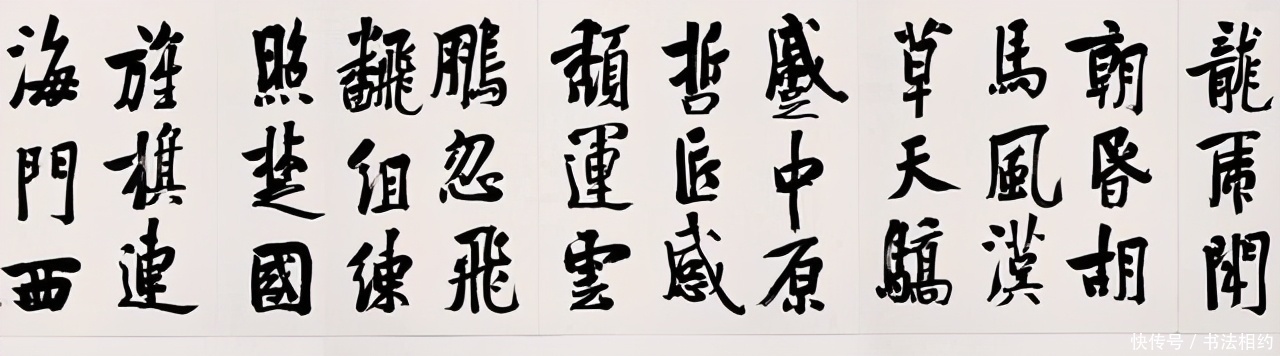 龍虎鬥
朝昏胡
馬風漢
草天驕
蹙中原
哲匠感
頹運雲
鵬忽飛
飜組練
照楚國
旌旗連
海門西
快传号 / 书法相约